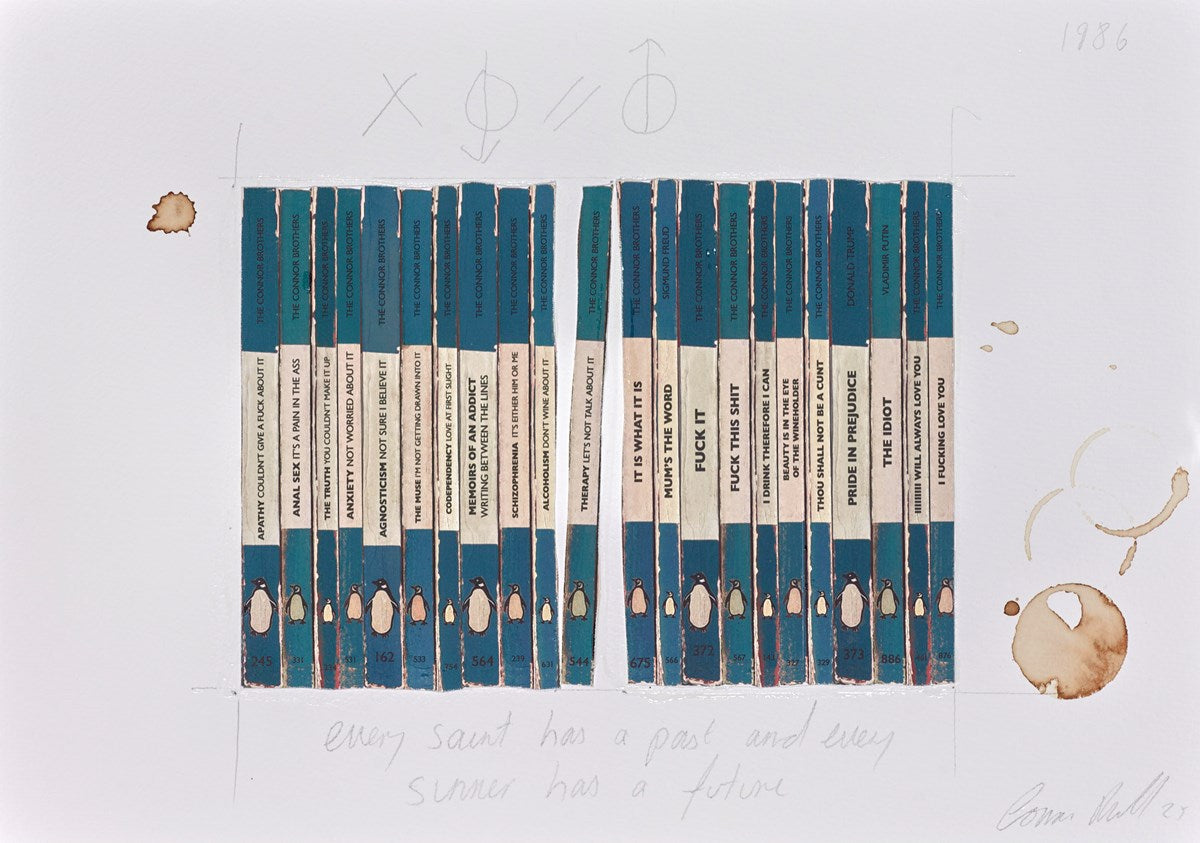 1986
THE CONNOR BROTHERS
APATHY COULDN'T GIVE A FUCK ABOUT IT
245
THE CONNOR BROTHERS
ANAL SEX IT'S A PAIN IN THE ASS
331
THE CONNOR BROTHERS
THE TRUTH YOU COULDN'T MAKE IT UP
234
THE CONNOR BROTHERS
ANXIETY NOT WORRIED ABOUT IT
531
THE CONNOR BROTHERS
AGNOSTICISM NOT SURE I BELIEVE IT
162
THE CONNOR BROTHERS
THE MUSE I'M NOT GETTING DRAWN INTO IT
533
THE CONNOR BROTHERS
CODEPENDENCY LOVE AT FIRST SLIGHT
754
THE CONNOR BROTHERS
MEMOIRS OF AN ADDICT
WRITING BETWEEN THE LINES
564
THE CONNOR BROTHERS
SCHIZOPHRENIA IT'S EITHER HIM OR ME
239
THE CONNOR BROTHERS
ALCOHOLISM DON'T WINE ABOUT IT
631
THE CONNOR BROTHERS
THERAPY LET'S NOT TALK ABOUT IT
544
THE CONNOR BROTHERS
IT IS WHAT IT IS
675
SIGMUND FREUD
MUM'S THE WORD
566
THE CONNOR BROTHERS
FUCK IT
372
THE CONNOR BROTHERS
FUCK THIS SHIT
567
THE CONNOR BROTHERS
I DRINK THEREFORE I CAN
THE CONNOR BROTHERS
BEAUTY IS IN THE EYE
OF THE WINEHOLDER
327
THE CONNOR BROTHERS
THOU SHALL NOT BE A CUNT
329
DONALD TRUMP
PRIDE IN PREJUDICE
373
VLADIMIR PUTIN
THE IDIOT
886
THE CONNOR BROTHERS
IIIIIIIII WILL ALWAYS LOVE YOU
THE CONNOR BROTHERS
I FUCKING LOVE YOU
876
every saint has a past and every
sinner has a future